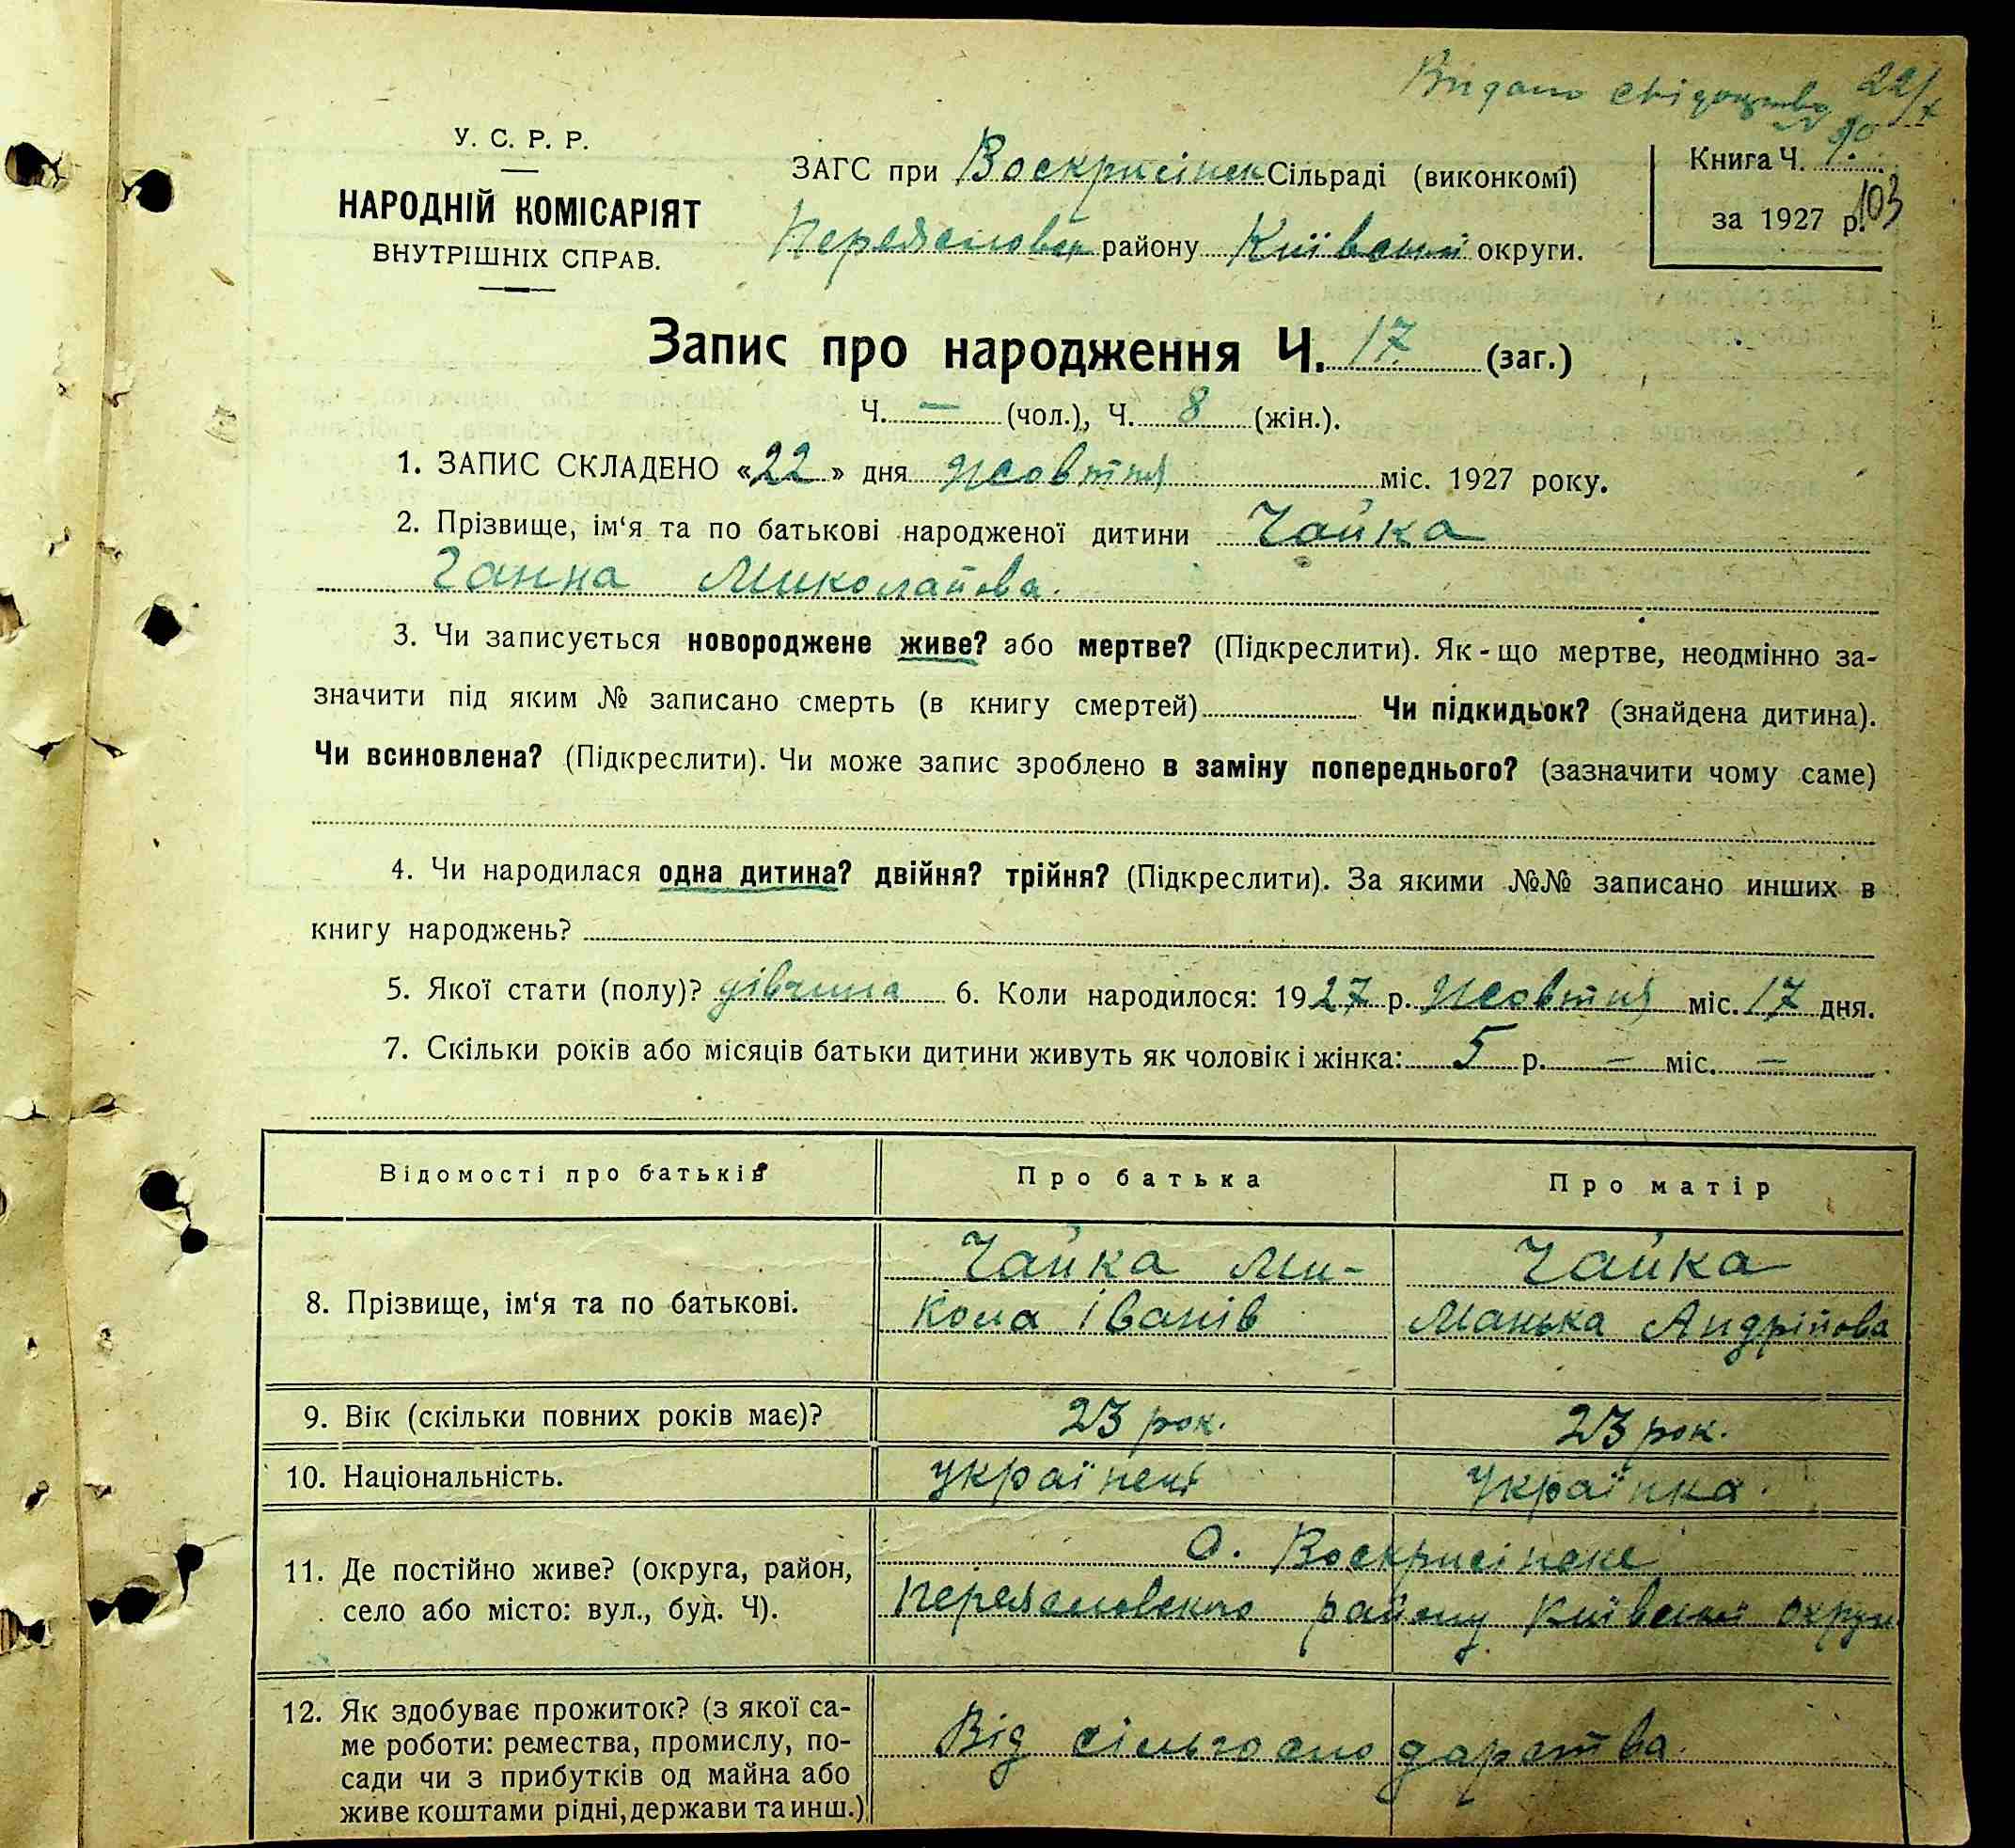 Видано свідоцтво 22/X
№ 90
У. С. Р. Р.
НАРОДНІЙ КОМІСАРІЯТ
ВНУТРІШНІХ СПРАВ.
ЗАГС при Воскрисінск Сільраді (виконкомі)
Переяславськ району Київської округи.
Книга Ч.
за 1927 р.
103
Запис про народження Ч. 17 (заг.)
Ч. — (чол.), Ч. 8 (жін.).
1. ЗАПИС СКЛАДЕНО «22» дня Жовтня міс. 1927 року.
2. Прізвище, ім‘я та по батькові народженої дитини Чайка
Ганна Миколайова.
3. Чи записується новороджене живе? або мертве? (Підкреслити). Як-що мертве, неодмінно за-
значити під яким № записано смерть (в книгу смертей) Чи підкидьок? (знайдена дитина).
Чи всиновлена? (Підкреслити). Чи може запис зроблено в заміну попереднього? (зазначити чому саме)
4. Чи народилася одна дитина? двійня? трійня? (Підкреслити). За якими №№ записано инших в
книгу народжень?
5. Якої стати (полу)? дівчина 6. Коли народилося: 1927 р. Жовтня міс. 17 дня.
7. Скільки років або місяців батьки дитини живуть як чоловік і жінка: 5 р. — міс. —
Відомості про батьків Про батька Про матір
8. Прізвище, ім‘я та по батькові.
Чайка Ми-
кола Іванів
Чайка
Манька Андрійова
9. Вік (скільки повних років має)? 23 рок. 23 рок.
10. Національність. Українець Українка.
11. Де постійно живе? (округа, район,
село або місто: вул., буд. Ч).
С. Воскрисінське
Переяславського району Київської округи
12. Як здобуває прожиток? (з якої са-
ме роботи: ремества, промислу, по-
сади чи з прибутків од майна або
живе коштами рідні, держави та инш.)
Від сільгосподарства